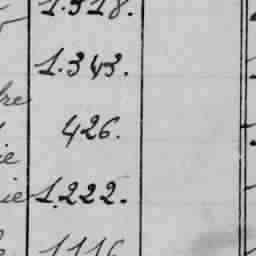 1.318.
1.343.
426.
ie
1.222.
1116